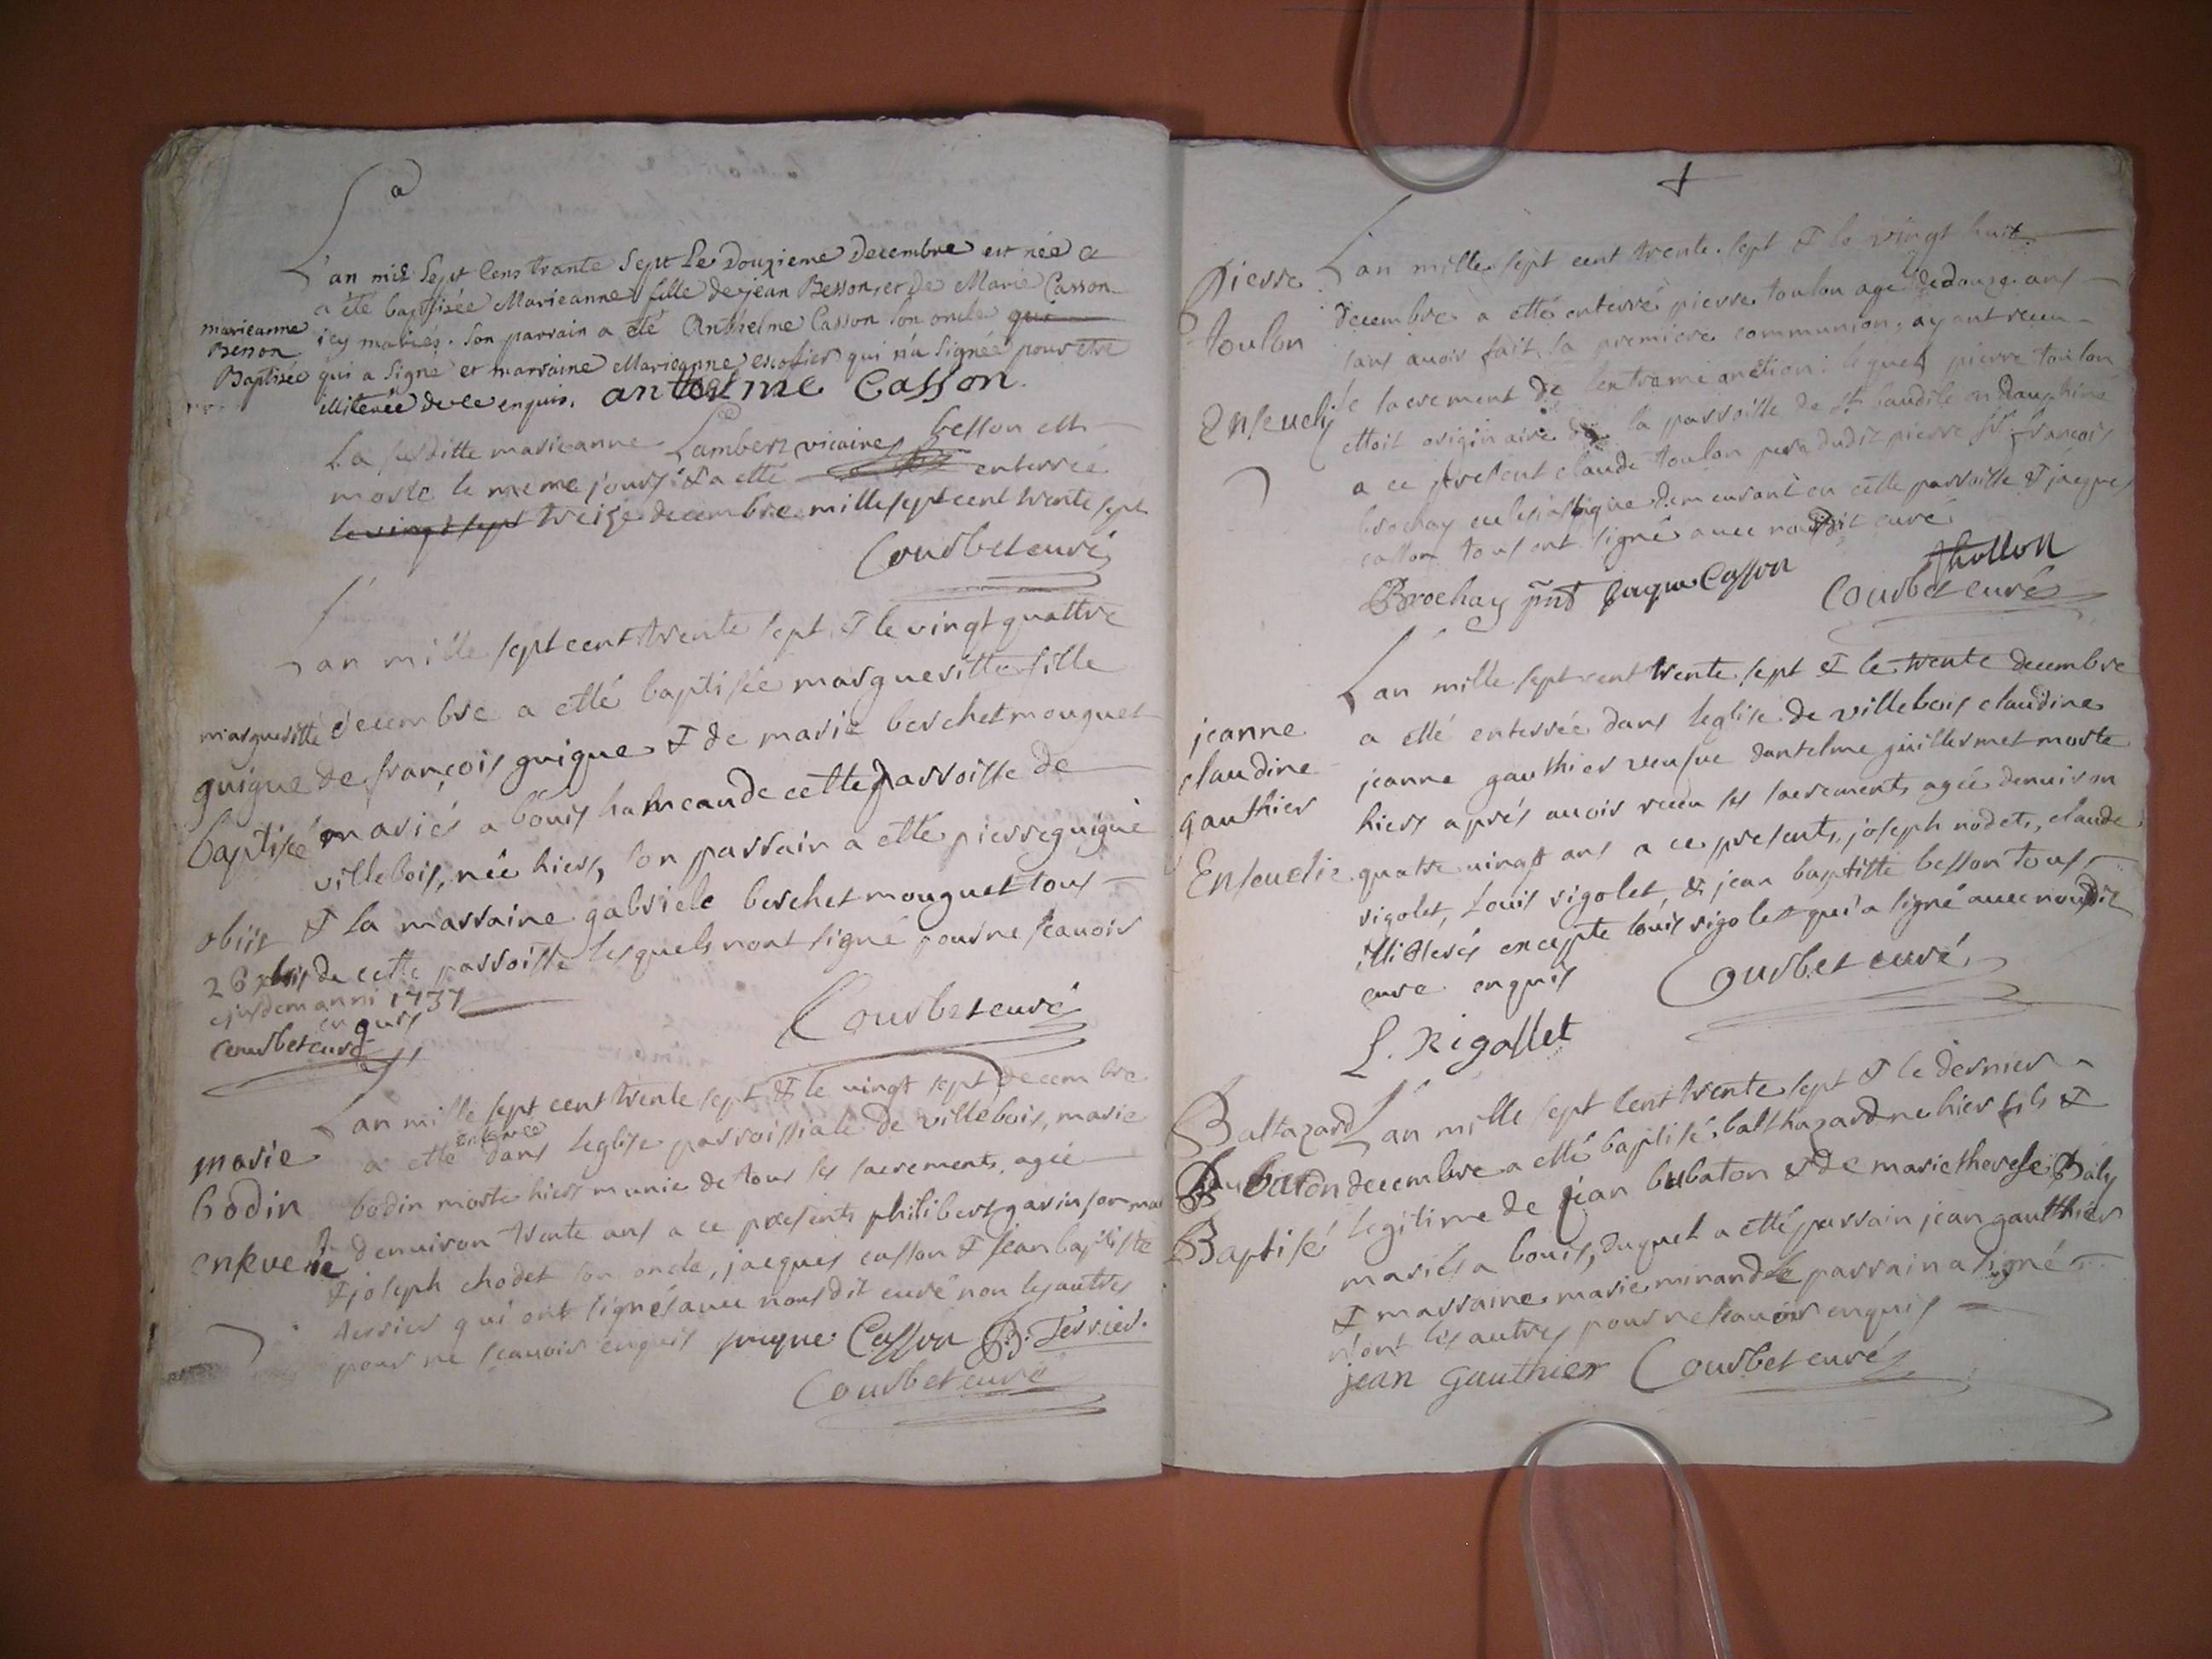 L'an mil Sept Cens trante Sept Le Douzieme Decembre est née &
a été baptisée Marieanne fille de jean Besson, et De Marie Casson
marieanne
Besson
Baptisée
icy mariés. Son parrain a été Anthelme Casson son oncle qui
qui a Signé et marraine Marieanne escofier qui n'a Signée pour être
illiterée de ce enquis. antelme Casson.
La susditte marieanne Lambert vicaire besson est
morte le meme jours & a etté enterrée
le vingt sept treize decembre mille sept cent trente sept
Courbet curé
Lan mille sept cent trente sept & le vingt quattre
margueritte
guigue
baptisée
decembre a etté baptisée margueritte fille
de françois guigue & de marie berchet mouguet
mariés a bouis hameau de cette parroisse de
villebois, née hiers, son parrain a etté pierre guigue
& la marraine gabriele berchet mouguet tous
de cette parroisse lesquels n'ont signé pour ne scauoir
enquis
obiit
26 xbris
ejusdem anni 1737
Courbet curé
Courbet curé
Lan mille sept cent trente sept & le vingt sept decembre
marie
bodin
enseuelie
a etté enterrée dans leglise parroissiale de villebois, marie
bodin morte hiers munie de tous les sacrements, agée
denuiron trente ans a ce presents philibert garin son mari
& joseph chodet son oncle, jacques casson & jean baptiste
terrier qui ont signés auec nousdit curé non les autres
pour ne scauoir enquis jacque Casson B. Terrier.
Courbet curé
Pierre
toulon
Enseueli
Lan mille sept cent trente sept & le vingt huit
decembre a etté enterré pierre toulon agé de douze ans
sans auoir fait sa premiere communion, ayant receu
le sacrement de lextreme onction: lequel pierre toulon
ettoit originaire de la parroisse de st baudile en dauphiné
a ce present claude toulon pere dudit pierre sr françois
brochay eclesiastique demeurant en cette parroisse & jacques
casson tous ont signé auec nousdit curé
Brochay jacque Casson thollon
Courbet curé
Lan mille sept cent trente sept & le trente decembre
jeanne
claudine
gauthier
Enseuelie
a etté enterrée dans leglise de villebois claudine
jeanne gauthier veufue dantelme guillermet morte
hiers aprés auoir receu les sacrements agée denuiron
quatre vingt ans a ce presents, joseph nodet, claude
rigolet, Louis rigolet, & jean baptiste besson tous
illiterés excepte louis rigolet qui a signé auec nousdit
cure enquis Courbet curé
L. Rigollet
Baltazard
bubaton
Baptisé
Lan mille sept cent trente sept & le dernier
decembre a etté baptisé balthazard ne hier fils &
legitime de jean bubaton & de marie therese Baly
mariés a bouis, duquel a etté parrain jean gauthier
& marraine marie minand le parrain a signé
n'ont les autres pour ne scauoir enquis
jean Gauthier Courbet curé